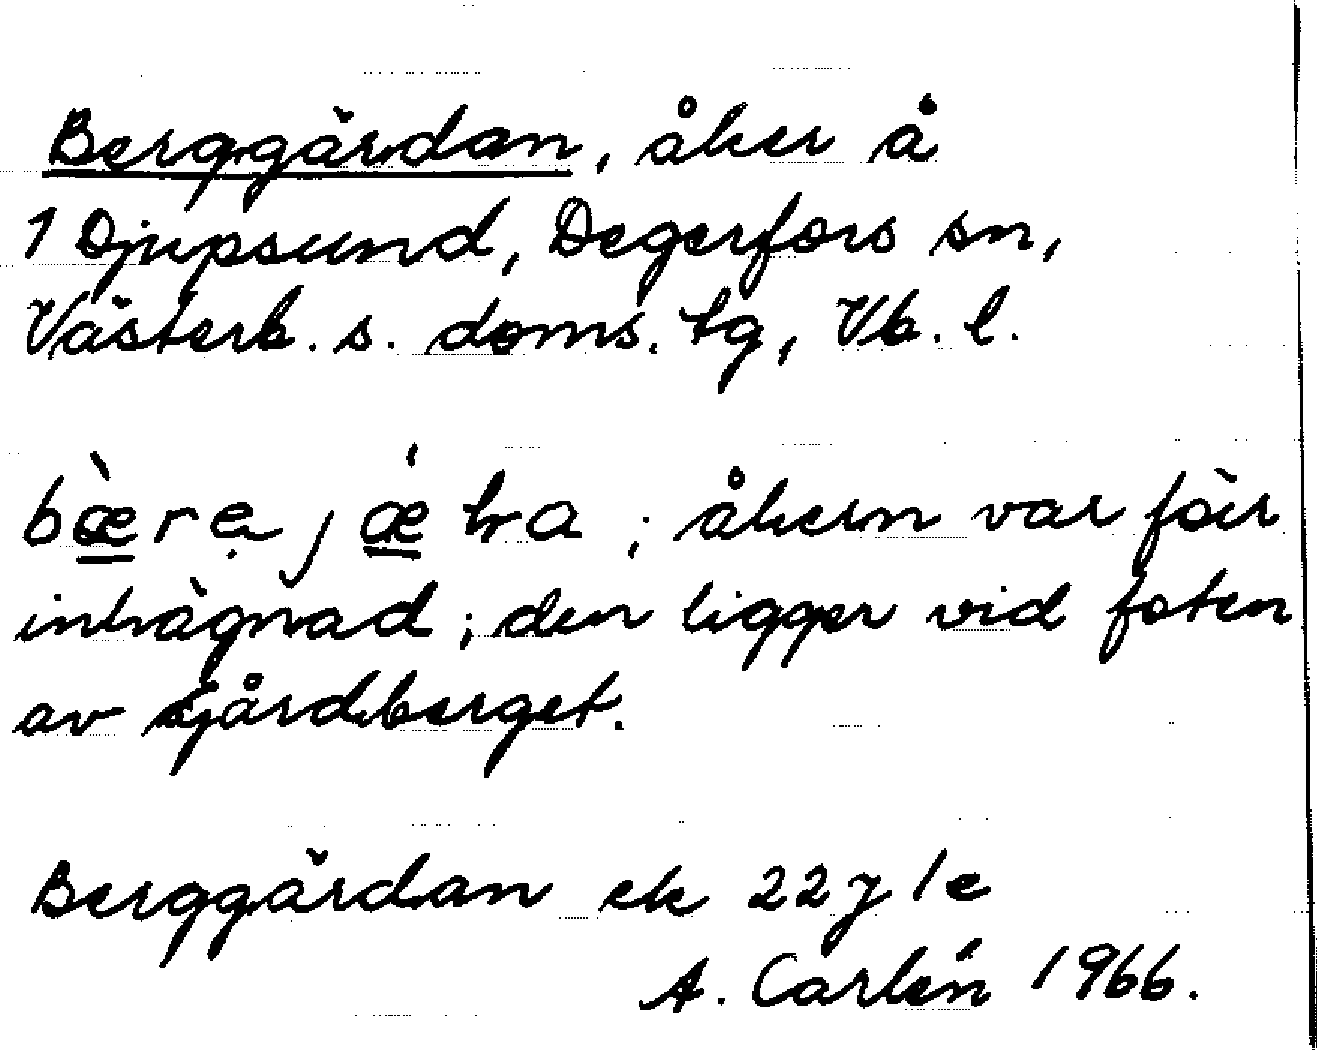 Berggärdan, åker å
1 Djupsund, Degerfors sn,
Västerb. s. doms. tg, Vb. l.
bæ̀re̩jæ̀ʈra; åkern var förr
inhägnad; den ligger vid foten
av Gårdberget.
Berggärdan ek 22 y 1 e
A. Carlén 1966.